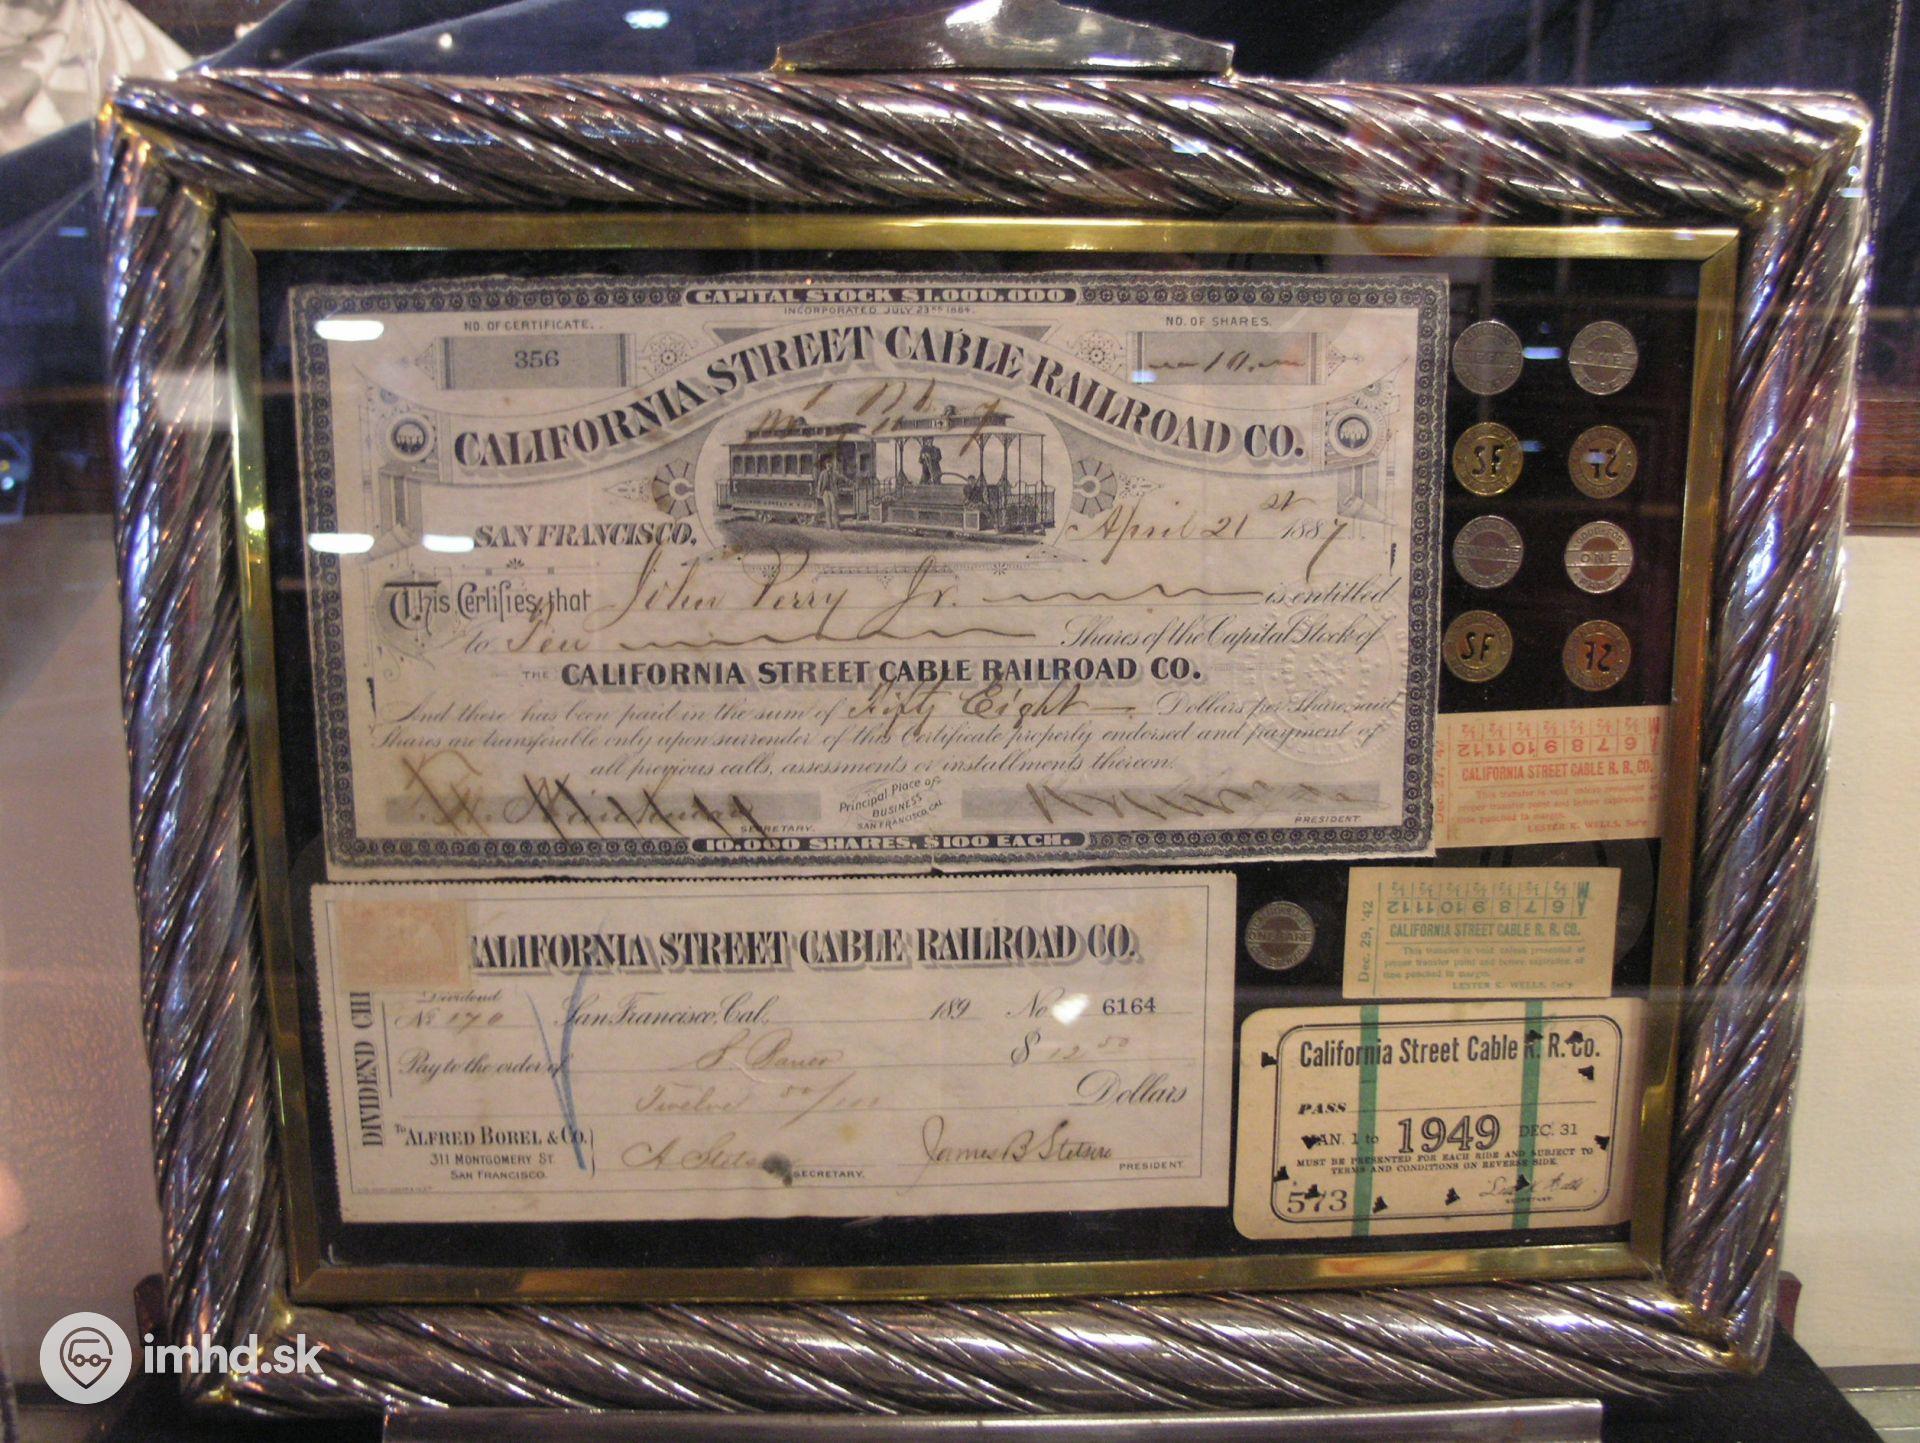 CAPITAL STOCK $1.000.000
INCORPORATED JULY 23RD 1884.
NO. OF CERTIFICATE.
356
NO. OF SHARES.
10
CALIFORNIA STREET CABLE RAILROAD CO.
SAN FRANCISCO, April 21st 1887
This Certifies that John Perry Jr. is entitled
to Ten Shares of the Capital Stock of
THE CALIFORNIA STREET CABLE RAILROAD CO.
And there has been paid in the sum of Fifty Eight Dollars per Share, said
Shares are transferable only upon surrender of this Certificate properly endorsed and payment of
all previous calls, assessments or installments thereon.
Principal Place of
BUSINESS
SAN FRANCISCO, CAL
SECRETARY.
PRESIDENT.
10.000 SHARES, $100 EACH.
ONE
SF
SF
ONE FARE
ONE
SF
SF
6 7 8 9 10 11 12
Dec. 27, '42
CALIFORNIA STREET CABLE R. R. CO.
This transfer is void unless presented at
proper transfer point and before expiration of
time punched in margin.
LESTER K. WELLS, Sec'y
ONE FARE
6 7 8 9 10 11 12
Dec. 29, '42
CALIFORNIA STREET CABLE R. R. CO.
This transfer is void unless presented at
proper transfer point and before expiration of
time punched in margin.
LESTER K. WELLS, Sec'y
CALIFORNIA STREET CABLE RAILROAD CO.
Dividend
No 170 San Francisco, Cal., 189 No 6164
Pay to the order of $ 12 50
Twelve 50/100 Dollars
DIVIDEND
To ALFRED BOREL & CO.
311 MONTGOMERY ST.
SAN FRANCISCO.
SECRETARY.
James B Stetson
PRESIDENT
California Street Cable R. R. Co.
PASS
JAN. 1 to 1949 DEC. 31
MUST BE PRESENTED FOR EACH RIDE AND SUBJECT TO
TERMS AND CONDITIONS ON REVERSE SIDE.
573
SECRETARY
imhd.sk